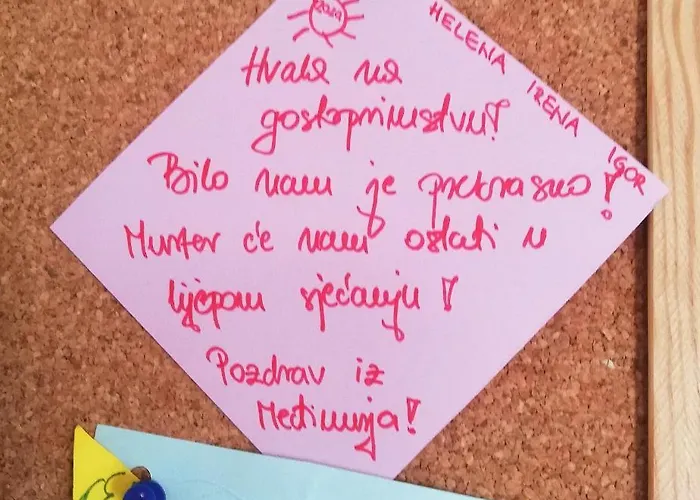 2021
HELENA IRENA IGOR
Hvala na
gostoprimstvu!
Bilo nam je prekrasno!
Munter će nam ostati u
lijepom sjećanju!
Pozdrav iz
Međimurja!